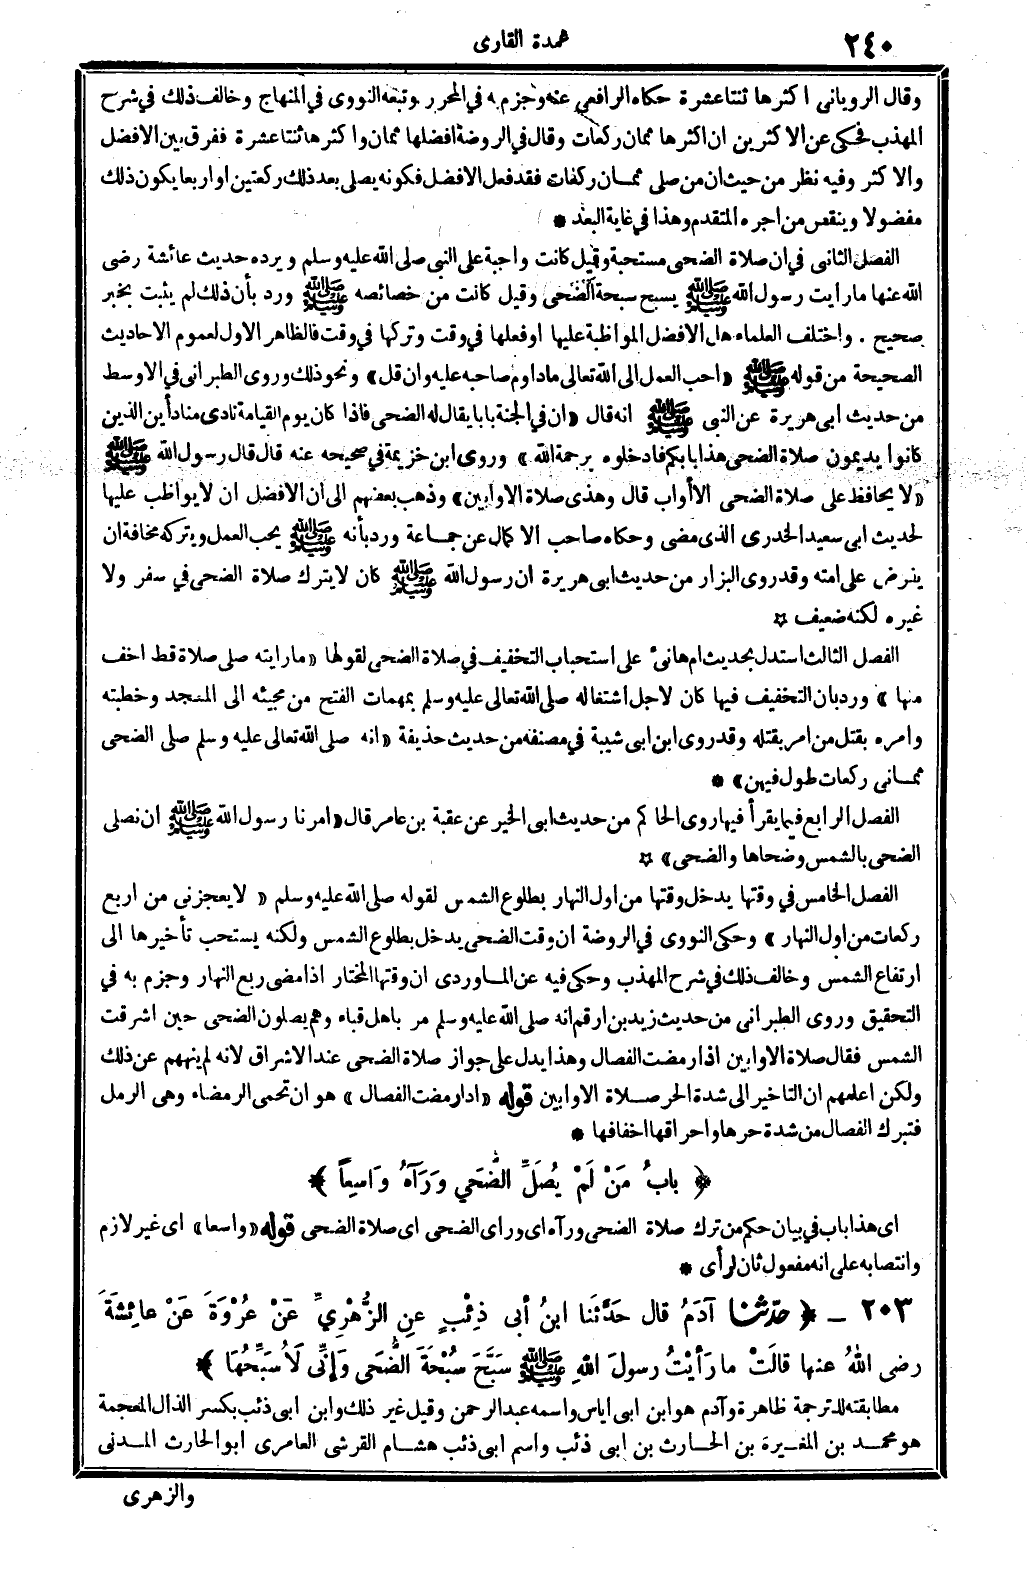 ٢٤٠
عمدة القارى
وقال الرويانى اكثرها ثنتاعشرة حكاه الرافعى عنه وجزم به فى المحرر وتبعه النووى فى المنهاج وخالف ذلك فى شرح
المهذب فحكى عن الاكثرين ان اكثرها ثمان ركعات وقال فى الروضة افضلها ثمان واكثرها ثنتاعشرة ففرق بين الافضل
والاكثر وفيه نظر من حيث ان من صلى ثمان ركعات فقد فعل الافضل فكونه يصلى بعد ذلك ركعتين او اربعا يكون ذلك
مفضولا وينقص من اجره المتقدم وهذا فى غاية البعد *
الفصل الثانى فى ان صلاة الضحى مستحبة وقيل كانت واجبة على النبى صلى الله عليه وسلم ويرده حديث عائشة رضى
الله عنها ما رايت رسول الله ﷺ يسبح سبحة الضحى وقيل كانت من خصائصه ﷺ ورد بأن ذلك لم يثبت بخبر
صحيح . واختلف العلماء هل الافضل المواظبة عليها او فعلها فى وقت وتركها فى وقت فالظاهر الاول لعموم الاحاديث
الصحيحة من قوله ﷺ «احب العمل الى الله تعالى ماداوم صاحبه عليه وان قل» ونحو ذلك وروى الطبرانى فى الاوسط
من حديث ابى هريرة عن النبى ﷺ انه قال «ان فى الجنة بابا يقال له الضحى فاذا كان يوم القيامة نادى مناد أين الذين
كانوا يديمون صلاة الضحى هذا بابكم فادخلوه برحمة الله» وروى ابن خزيمة فى صحيحه عنه قال قال رسول الله ﷺ
«لا يحافظ على صلاة الضحى الا أواب قال وهذى صلاة الاوابين» وذهب بعضهم الى ان الافضل ان لا يواظب عليها
لحديث ابى سعيد الخدرى الذى مضى وحكاه صاحب الاكمال عن جماعة ورد بأنه ﷺ يحب العمل ويتركه مخافة ان
يفرض على امته وقد روى البزار من حديث ابى هريرة ان رسول الله ﷺ كان لا يترك صلاة الضحى فى سفر ولا
غيره لكنه ضعيف ☆
الفصل الثالث استدل بحديث ام هانىء على استحباب التخفيف فى صلاة الضحى لقولها «ما رايته صلى صلاة قط اخف
منها» ورد بان التخفيف فيها كان لاجل اشتغاله صلى الله تعالى عليه وسلم بمهمات الفتح من مجيئه الى المسجد وخطبته
وامره بقتل من امر بقتله وقد روى ابن ابى شيبة فى مصنفه من حديث حذيفة «انه صلى الله تعالى عليه وسلم صلى الضحى
ثمانى ركعات طول فيهن» *
الفصل الرابع فيما يقرأ فيها روى الحاكم من حديث ابى الخير عن عقبة بن عامر قال «امرنا رسول الله ﷺ ان نصلى
الضحى بالشمس وضحاها والضحى» ☆
الفصل الخامس فى وقتها يدخل وقتها من اول النهار بطلوع الشمس لقوله صلى الله عليه وسلم «لا يعجزنى من اربع
ركعات من اول النهار» وحكى النووى فى الروضة ان وقت الضحى يدخل بطلوع الشمس ولكنه يستحب تأخيرها الى
ارتفاع الشمس وخالف ذلك فى شرح المهذب وحكى فيه عن الماوردى ان وقتها المختار اذا مضى ربع النهار وجزم به فى
التحقيق وروى الطبرانى من حديث زيد بن ارقم انه صلى الله عليه وسلم مر باهل قباء وهم يصلون الضحى حين اشرقت
الشمس فقال صلاة الاوابين اذا رمضت الفصال وهذا يدل على جواز صلاة الضحى عند الاشراق لانه لم ينههم عن ذلك
ولكن اعلمهم ان التاخير الى شدة الحر صلاة الاوابين قوله «اذا رمضت الفصال» هو ان تحمى الرمضاء وهى الرمل
فتبرك الفصال من شدة حرها واحراقها اخفافها *
﴿ بابُ مَنْ لَمْ يُصَلِّ الضُّحَي وَرَآهُ وَاسِعاً ﴾
اى هذا باب فى بيان حكم من ترك صلاة الضحى ورآه اى وراى الضحى اى صلاة الضحى قوله «واسعا» اى غير لازم
وانتصابه على انه مفعول ثان لرأى *
٢٠٣ ــ ﴿ حدّثنا آدَمُ قال حَدَّثَنَا ابنُ أبى ذِئْبٍ عنِ الزُّهْرِيِّ عَنْ عُرْوَةَ عَنْ عائِشَةَ
رضى اللهُ عنها قالَتْ ما رَأيْتُ رسولَ اللهِ ﷺ سَبَّحَ سُبْحَةَ الضُّحَى وَإنِّى لَأُسَبِّحُهَا ﴾
مطابقته للترجمة ظاهرة وآدم هو ابن ابى اياس واسمه عبد الرحمن وقيل غير ذلك وابن ابى ذئب بكسر الذال المعجمة
هو محمد بن المغيرة بن الحارث بن ابى ذئب واسم ابى ذئب هشام القرشى العامرى ابو الحارث المدنى
والزهرى